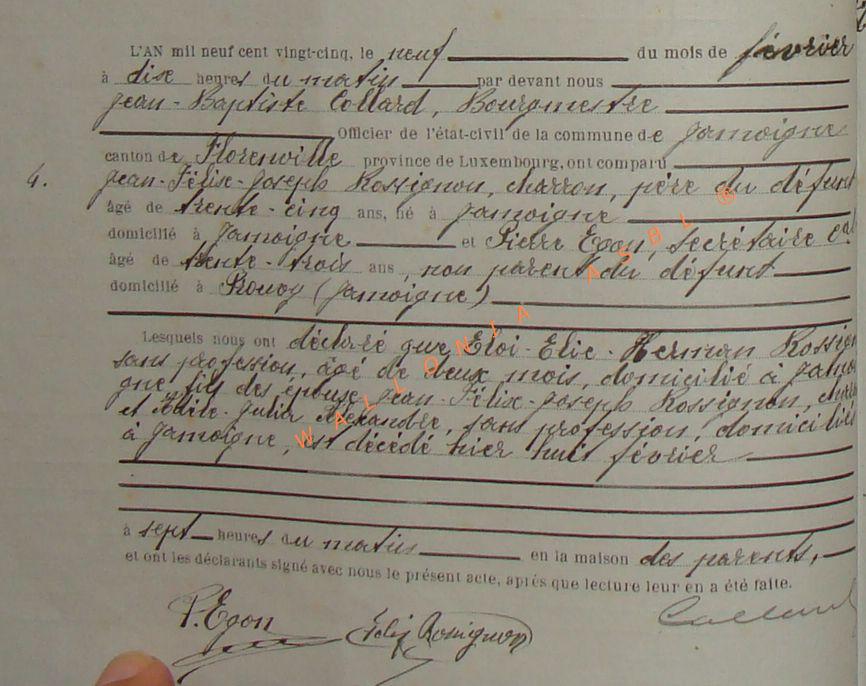 L'AN mil neuf cent vingt-cinq, le neuf du mois de février
à dix heures du matin par devant nous
Jean-Baptiste Collard, Bourgmestre
Officier de l'état-civil de la commune de Jamoigne
canton de Florenville province de Luxembourg, ont comparu
4. Jean-Félix-Joseph Rossignon, charron, père du défunt
âgé de trente-cinq ans, né à Jamoigne
domicilié à Jamoigne et Pierre Egon, secrétaire cal
âgé de trente-trois ans, non parent du défunt
domicilié à Prouvy (Jamoigne)
Lesquels nous ont déclaré que Eloi-Elie-Herman Rossign
sans profession, âgé de deux mois, domicilié à Jamoi
gne, fils des époux Jean-Félix-Joseph Rossignon, charr
et Julia Alexandre, sans profession, domiciliés
à Jamoigne, est décédé hier huit février
à sept heures du matin en la maison des parents,
et ont les déclarants signé avec nous le présent acte, après que lecture leur en a été faite.
P. Egon Félix Rossignon Collard
WALLONIA ASBL ®